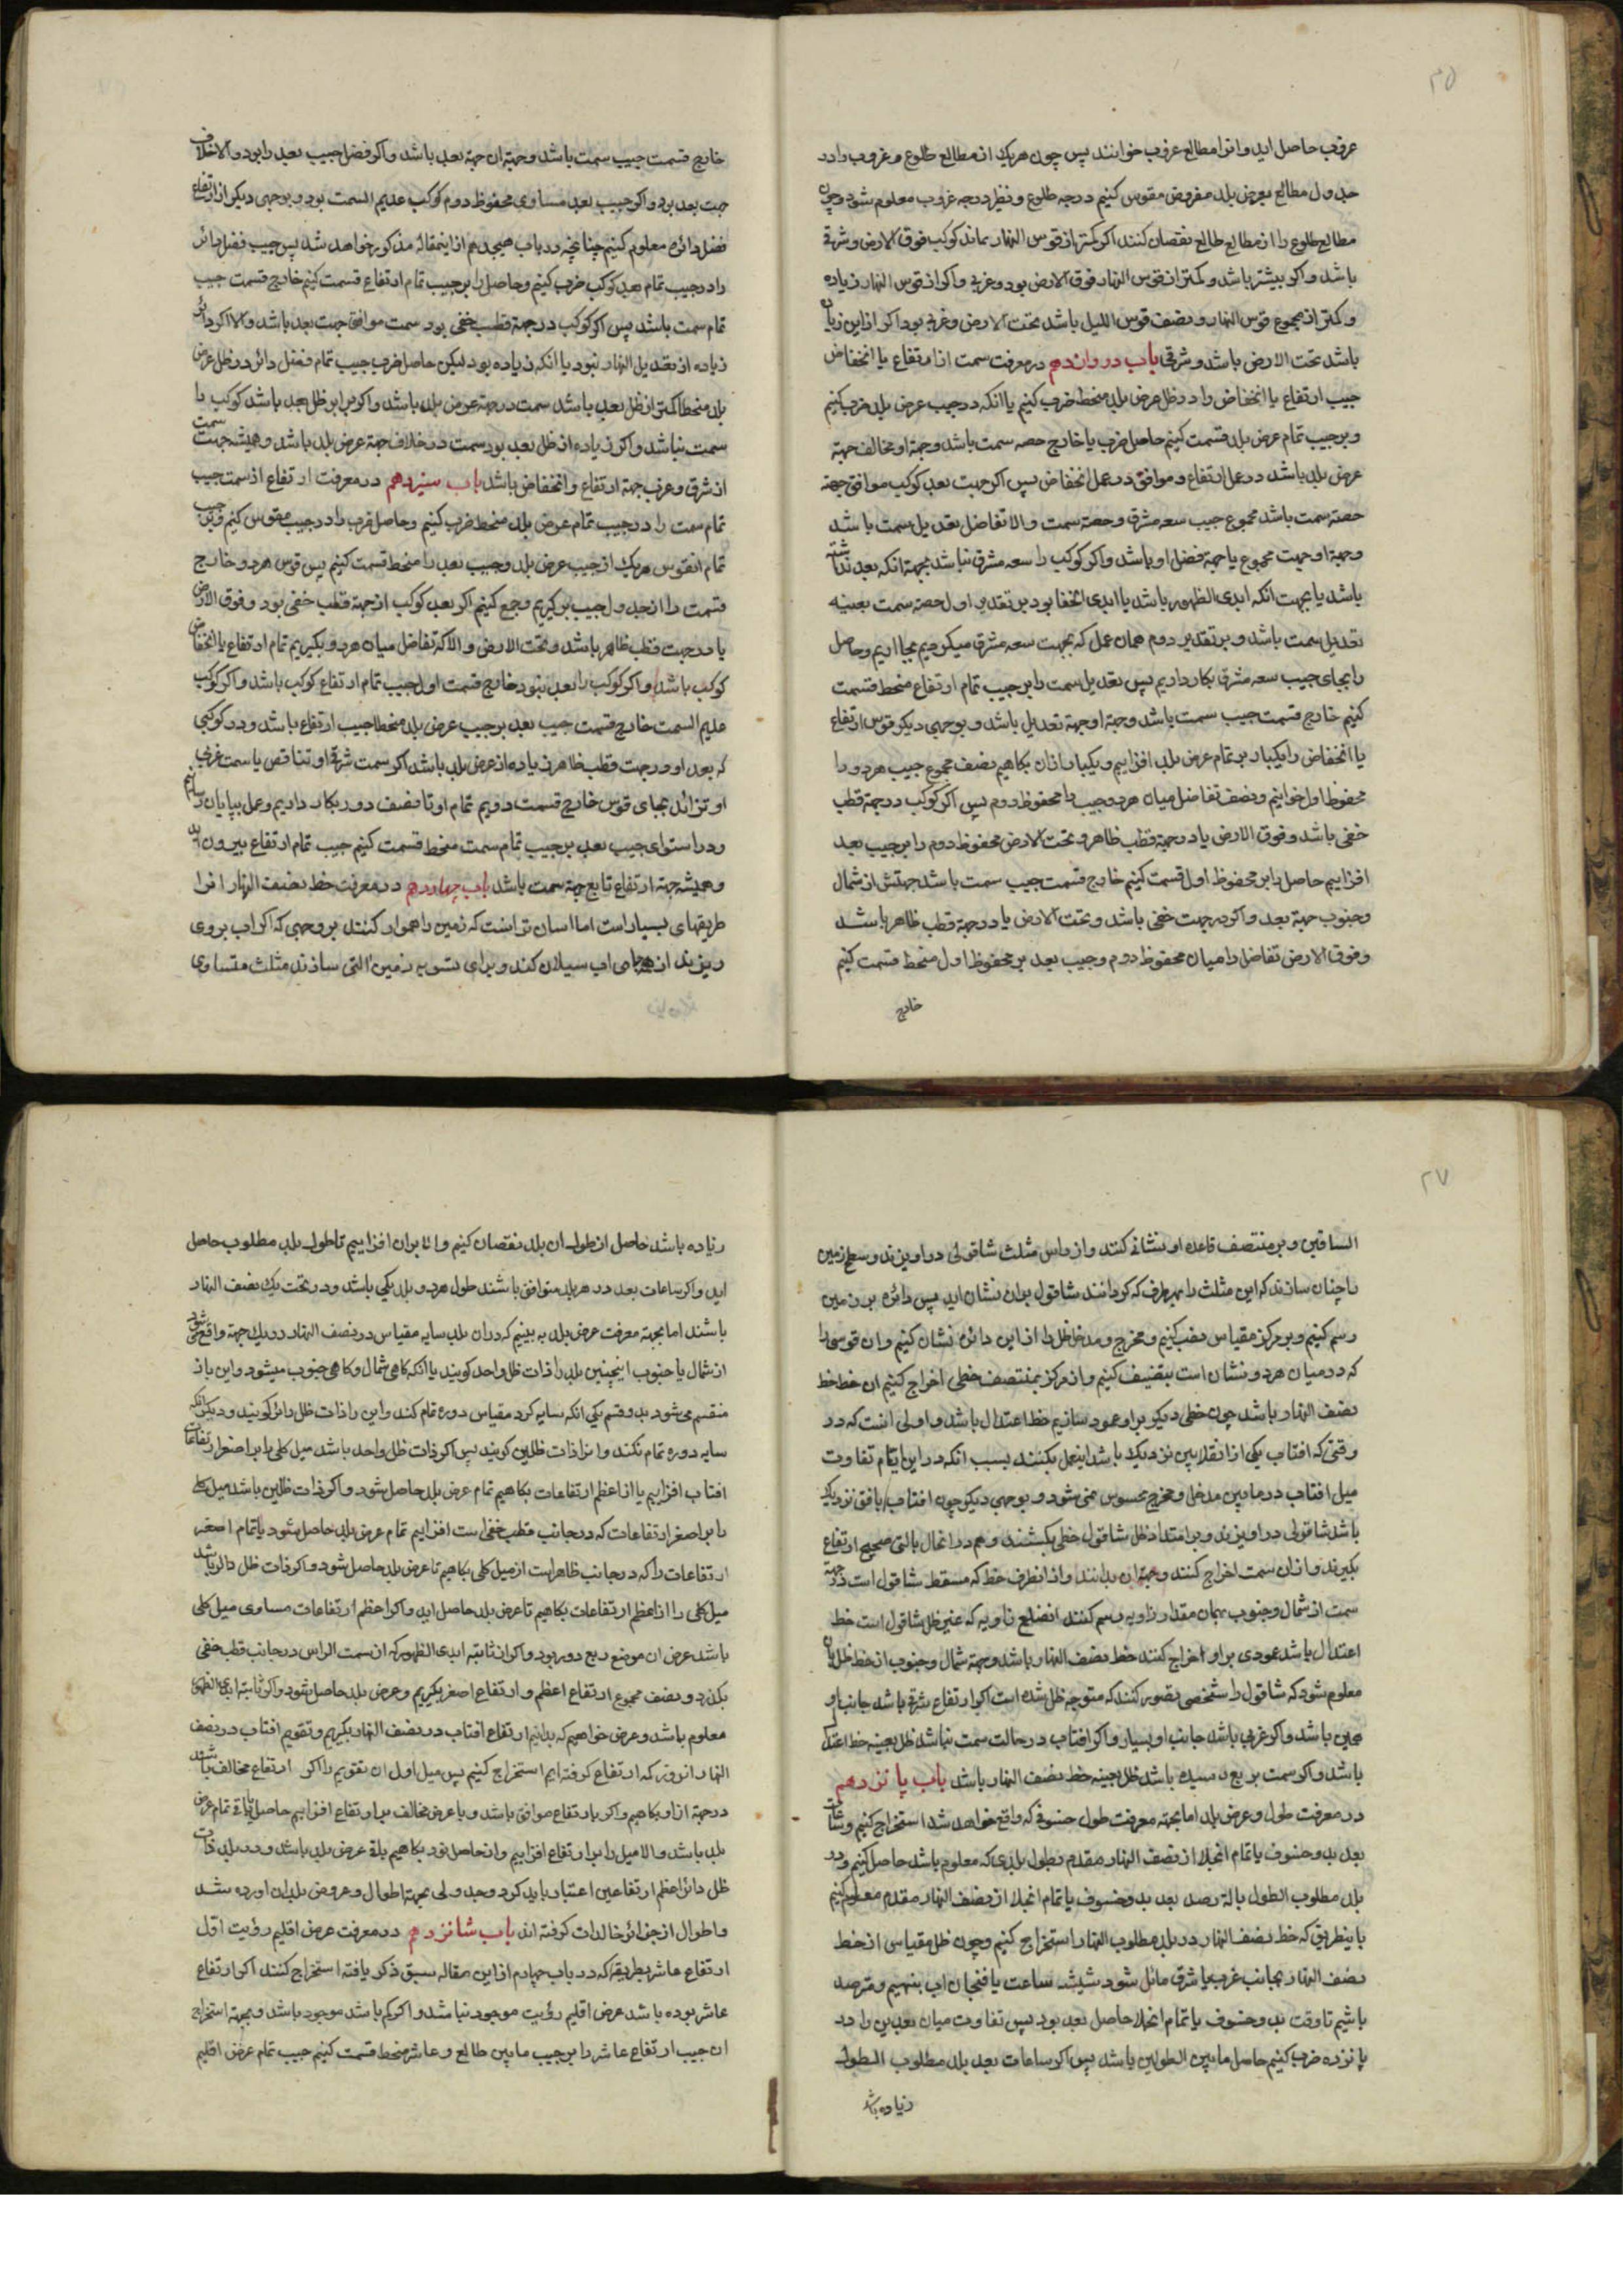 ۲۵
عروب حاصل اید وانرا مطالع غروب خوانند پس چون هریک از مطالع طلوع و غروب را در
جدول مطالع بعرض بلد مفروض مقوس کنیم درجه طلوع و نظیر درجه غروب معلوم شود وچون
مطالع طلوع را از مطالع طالع نقصان کنند اکر کمتر از قوس النهار بماند کوکب فوق الارض و شرقی
باشد و اکر بیشتر باشد و کمتر از قوس النهار فوق الارض بود و غربی و اکر از قوس النهار زیاده
و کمتر از مجموع قوس النهار و نصف قوس اللیل باشد تحت الارض و غربی بود اکر از این زیاده
باشد تحت الارض باشد و شرقی باب دوازدهم در معرفت سمت از ارتفاع یا انخفاض
جیب ارتفاع یا انخفاض را در ظل عرض بلد منحط ضرب کنیم یا انکه در جیب عرض بلد ضرب کنیم
و بر جیب تمام عرض بلد قسمت کنیم حاصل ضرب یا خارج حصه سمت باشد و جهة او مخالف جهة
عرض بلد باشد در عمل ارتفاع و موافق در عمل انخفاض پس اکر جهت بعد کوکب موافق جهة
حصه سمت باشد مجموع جیب سعه مشرق و حصه سمت و الا تفاضل تعدیل سمت باشد
وجهة او جهت مجموع یا جهة فضل او باشد واکر کوکب را سعه مشرق نباشد بجهة انکه بعد نداشته
باشد یا بجهت انکه ابدی الظهور باشد یا ابدی الخفا بود بر تقدیر اول حصه سمت بعینه
تعدیل سمت باشد و بر تقدیر دوم همان عمل که بجهت سعه مشرق میکردیم بجا اریم و حاصل
را بجای جیب سعه مشرق بکار داریم پس تعدیل سمت را بر جیب تمام ارتفاع منحط قسمت
کنیم خارج قسمت جیب سمت باشد وجهة او جهة تعدیل باشد و بوجهی دیکر قوس ارتفاع
یا انخفاض را یکبار بر تمام عرض بلد افزاییم و یکبار ازان بکاهیم نصف مجموع جیب هر دو را
محفوظ اول خوانیم و نصف تفاضل میان هر دو جیب را محفوظ دوم پس اکر کوکب در جهة قطب
خفی باشد و فوق الارض یا در جهة قطب ظاهر و تحت الارض محفوظ دوم را بر جیب بعد
افزاییم حاصل را بر محفوظ اول قسمت کنیم خارج قسمت جیب سمت باشد جهتش از شمال
وجنوب جهة بعد و اکر در جهت خفی باشد و تحت الارض یا در جهة قطب ظاهر باشد
و فوق الارض تفاضل را میان محفوظ دوم و جیب بعد بر محفوظ اول منحط قسمت کنیم
خارج
خارج قسمت جیب سمت باشد وجهة ان جهة بعد باشد واکر فضل جیب بعد را بود والا خلاف
جهت بعد بود واکر جیب بعد مساوی محفوظ دوم کوکب عدیم السمت بود و بوجهی دیکر از ارتفاع
فضل دائره معلوم کنیم چنانچه در باب هیجدهم از اینمقاله مذکور خواهد شد پس جیب فضل دائر
را در جیب تمام بعد کوکب ضرب کنیم و حاصل را بر جیب تمام ارتفاع قسمت کنیم خارج قسمت جیب
تمام سمت باشد پس اکر کوکب در جهة قطب خفی بود سمت موافق جهت بعد باشد والا اکر دائر
زیاده از تعدیل النهار نبود یا انکه زیاده بود لیکن حاصل ضرب جیب تمام فضل دائر در ظل عرض
بلد منحطا کمتر از ظل بعد باشد سمت در جهة عرض بلد باشد واکر برابر ظل بعد باشد کوکب را
سمت نباشد و اکر زیاده از ظل بعد بود سمت در خلاف جهة عرض بلد باشد و همیشه جهت سمت
از شرق و غرب جهة ارتفاع وانخفاض باشد باب سیزدهم در معرفت ارتفاع از سمت جیب
تمام سمت را در جیب تمام عرض بلد منحط ضرب کنیم و حاصل ضرب را در جیب مقوس کنیم و بر جیب
تمام انقوس هریک از جیب عرض بلد و جیب بعد را منحط قسمت کنیم پس قوس هر دو خارج
قسمت را از جدول جیب برکیریم و جمع کنیم اکر بعد کوکب از جهة قطب خفی بود و فوق الارض
یا در جهت قطب ظاهر باشد و تحت الارض والا که تفاضل میان هر دو بکیریم تمام ارتفاع یا انخفاض
کوکب باشد و اکر کوکب را بعد نبود خارج قسمت اول جیب تمام ارتفاع کوکب باشد واکر کوکب
عدیم السمت خارج قسمت جیب بعد بر جیب عرض بلد منحطا جیب ارتفاع باشد و در کوکبی
که بعد او در جهت قطب ظاهر زیاده از عرض بلد باشد اکر سمت شرقی او تناقص یا سمت غربی
او تزائد بجای قوس خارج قسمت دویم تمام او تا نصف دور بکار داریم و عمل بپایان رسانیم
ودر استوای جیب بعد بر جیب تمام سمت منحط قسمت کنیم جیب تمام ارتفاع بیرون اید
وهمیشه جهة ارتفاع تابع جهة سمت باشد باب چهاردهم در معرفت خط نصف النهار انرا
طریقهای بسیار است اما اسان تر انست که زمین را هموار کنند بر وجهی که اکر اب بر وی
ریزند از همه جای اب سیلان کند و برای تسویه زمین التی سازند مثلث متساوی
۲۷
الساقین و بر منتصف قاعده او نشانی کنند و از راس مثلث شاقولی در اویزند و سطح زمین
را چنان سازند که این مثلث را بهر طرف که کردانند شاقول بران نشان اید پس دائره بر زمین
رسم کنیم و بر مرکز مقیاس نصب کنیم و مخرج و مدخل ظل را از این دائره نشان کنیم وان قوسی را
که در میان هر دو نشان است بتنصیف کنیم و از مرکز بمنتصف خطی اخراج کنیم ان خط خط
نصف النهار باشد چون خطی دیکر بر او عمود سازیم خط اعتدال باشد و اولی انست که در
وقتی که افتاب یکی از انقلابین نزدیک باشد اینعمل بکنند بسبب انکه در این ایام تفاوت
میل افتاب در مابین مدخل و مخرج محسوس نمی شود و بوجهی دیکر چون افتاب بافق نزدیک
باشد شاقولی در اویزند و بر امتداد ظل شاقول خطی بکشند و هم در انحال بالتی صحیح ارتفاع
بکیرند و ازان سمت اخراج کنند و جهة ان بدانند و از انطرف خط که مسقط شاقول است در جهة
سمت از شمال و جنوب بهمان مقدار زاویه رسم کنند انضلع زاویه که غیر ظل شاقول است خط
اعتدال باشد عمودی بر او اخراج کنند خط نصف النهار باشد و جهة شمال و جنوب از خط ظل بان
معلوم شود که شاقول را شخصی تصور کنند که متوجه ظل شده است اکر ارتفاع شرقی باشد جانب او
یمین باشد و اکر غربی باشد جانب او یسار و اکر افتاب در حالت سمت نباشد ظل بعینه خط اعتدال
باشد و اکر سمت بربع رسیده باشد ظل بعینه خط نصف النهار باشد باب پانزدهم
در معرفت طول و عرض بلد اما بجهة معرفت طول خسوفی که واقع خواهد شد استخراج کنیم وساعات
بعد بدو خسوف یا تمام انجلا از نصف النهار مقدم بطول بلدی که معلوم باشد حاصل کنیم و در
بلد مطلوب الطول بالة رصد بعد بدو خسوف یا تمام انجلا از نصف النهار مقدم معلوم کنیم
باینطریق که خط نصف النهار در بلد مطلوب النهار استخراج کنیم وچون ظل مقیاس از خط
نصف النهار بجانب غرب یا شرق مائل شود شیشه ساعت یا فنجان اب بنهیم و مترصد
باشیم تا وقت بدو خسوف یا تمام انجلا حاصل بعد بود پس تفاوت میان بعدین را در
پانزده ضرب کنیم حاصل مابین الطولین باشد پس اکر ساعات بعد بلد مطلوب الطول
زیاده باشد
زیاده باشد حاصل از طول ان بلد نقصان کنیم والا بران افزاییم تا طول بلد مطلوب حاصل
اید و اکر ساعات بعد در هر بلد متوافق باشند طول هر دو بلد یکی باشد و در تحت یک نصف النهار
باشند اما بجهة معرفت عرض بلد به بینیم که دران بلد سایه مقیاس در نصف النهار در یک جهة واقع می شود
از شمال یا جنوب اینچنین بلد را ذات ظل واحد کویند یا انکه کاهی شمال و کاهی جنوب میشود و این باز
منقسم می شود بدو قسم یکی انکه سایه کرد مقیاس دوره تمام کند و این را ذات ظل دائر کویند و دیکر انکه
سایه دوره تمام نکند و انرا ذات ظلین کویند پس اکر ذات ظل واحد باشد میل کلی را بر اصغر ارتفاعات
افتاب افزاییم یا از اعظم ارتفاعات بکاهیم تمام عرض بلد حاصل شود و اکر ذات ظلین باشد میل کلی
را بر اصغر ارتفاعات که در جانب قطب خفی است افزاییم تمام عرض بلد حاصل شود یا تمام اصغر
ارتفاعات را که در جانب ظاهر است از میل کلی بکاهیم تا عرض بلد حاصل شود و اکر ذات ظل دائر باشد
میل کلی را از اعظم ارتفاعات بکاهیم تا عرض بلد حاصل اید و اکر اعظم ارتفاعات مساوی میل کلی
باشد عرض ان موضع ربع دور بود و اکر از ثابته ابدی الظهور که از سمت الراس در جانب قطب خفی
بکذرد و نصف مجموع ارتفاع اعظم و ارتفاع اصغر بکیریم و عرض بلد حاصل شود و اکر ثابته ابدی الظهور
معلوم باشد و عرض خواهیم که بدانیم ارتفاع افتاب در نصف النهار بکیریم و تقویم افتاب در نصف
النهار انروز که ارتفاع کرفته ایم استخراج کنیم پس میل اول ان تقویم را اکر ارتفاع مخالف باشد
در جهة ازان بکاهیم واکر با ارتفاع موافق باشد و با عرض مخالف بر ارتفاع افزاییم حاصل یا باقی تمام عرض
بلد باشد والا میل را بر ارتفاع افزاییم وازحاصل نود بکاهیم باقی عرض بلد باشد و در بلد ذات
ظل دائر اعظم ارتفاعین اعتبار باید کرد و جدولی بجهة اطوال و عروض بلدان اورده شد
و اطوال از جزائر خالدات کرفته اند باب شانزدهم در معرفت عرض اقلیم رؤیت اول
ارتفاع عاشر بطریقه که در باب چهارم از این مقاله سبق ذکر یافته استخراج کنند اکر ارتفاع
عاشر بوده باشد عرض اقلیم رؤیت موجود نباشد و اکر کم باشد موجود باشد و بجهة استخراج
ان جیب ارتفاع عاشر را بر جیب مابین طالع و عاشر منحط قسمت کنیم جیب تمام عرض اقلیم